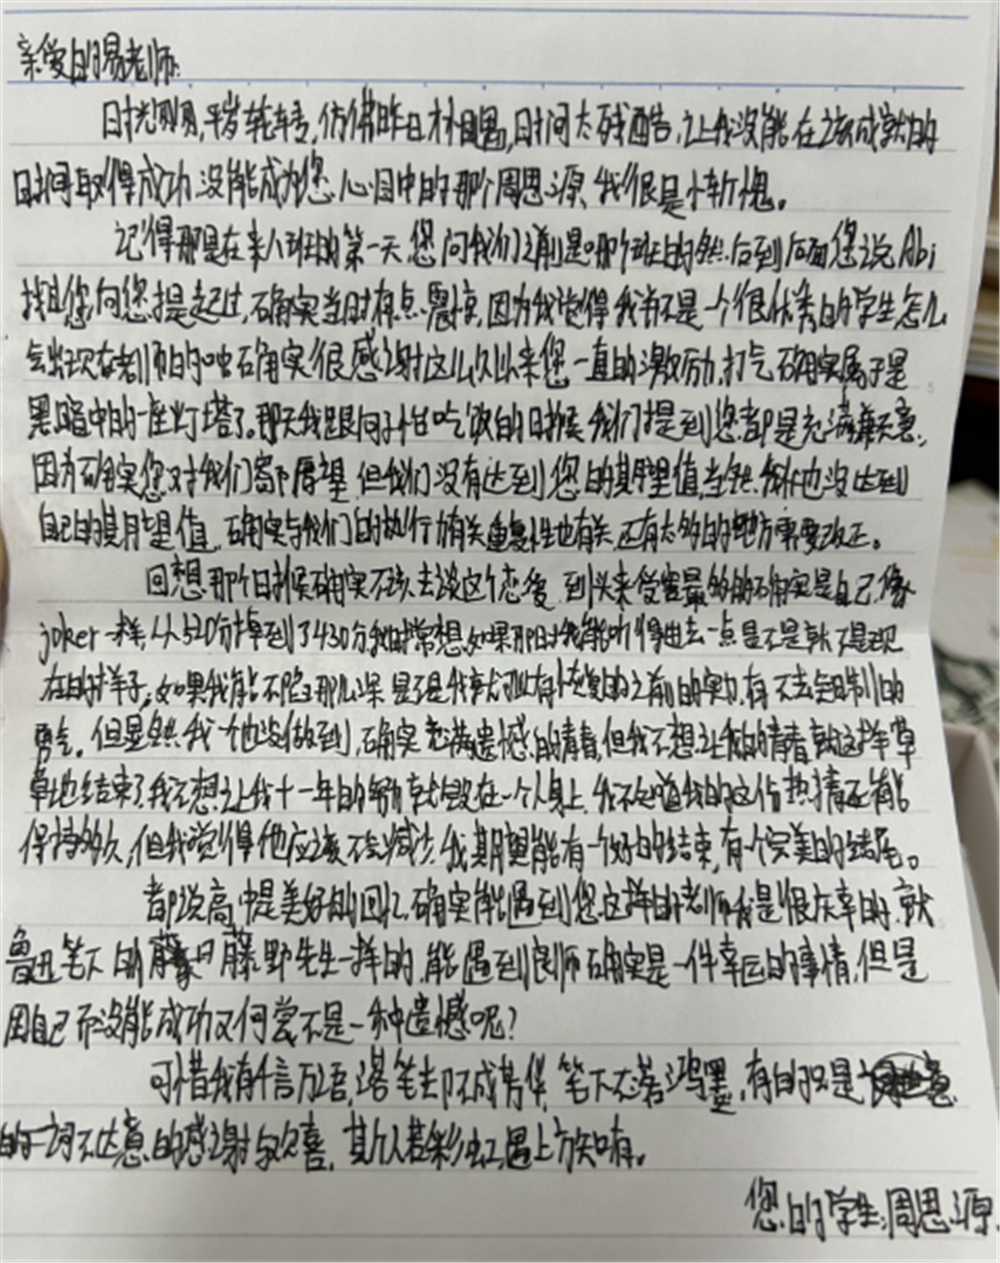 亲爱的易老师:
时光匆匆,年岁轮转,仿佛昨日才相遇,时间太残酷,让我没能在该成就的
时间取得成功,没能成为您心目中的那个周思源,我很是惭愧。
记得那是在来八班的第一天,您问我们之前是哪个班的,然后到后面您说Abi
找您向您提起过,确实当时有点震惊,因为我觉得我并不是一个很优秀的学生,怎么
会出现在老师的口中,确实很感谢这么久以来您一直的激励,打气,确实属于是
黑暗中的一座灯塔了。那天我跟向子怡吃饭的时候,我们提到您都是充满歉意,
因为确实您对我们寄予厚望,但我们没有达到您的期望值,当然我们也没达到
自己的期望值,确实与我们的执行力有关,重复性也有关,还有太多的地方需要改正。
回想那个时候确实不该去谈这个恋爱,到头来受害最多的确实是自己,像
joker一样,从520分掉到了430分,我时常想,如果那时我能听得进去一点是不是就不是现
在的样子,如果我能不陷那么深,是不是我就可以有恢复的之前的实力,有不去的
勇气。但显然我一也没做到,确实充满遗憾的青春,但我不想让我的青春就这样草
草地结束了,我不想让我十一年的努力就毁在一个人身上,我不知道我的这份热情还能
保持多久,但我觉得他应该不会减少,我期望能有一个好的结束,有个完美的结尾。
都说高中是美好的回忆,确实能遇到您这样的老师我是很庆幸的,就
鲁迅笔下的藤野先生一样的,能遇到良师确实是一件幸运的事情,但是
因自己而没能成功又何尝不是一种遗憾呢?
可惜我有千言万语,落笔却不成芳华,笔下不若鸿墨,有的只是
的一词不达意的感谢与欢喜,斯人若彩虹,遇上方知有。
您的学生:周思源